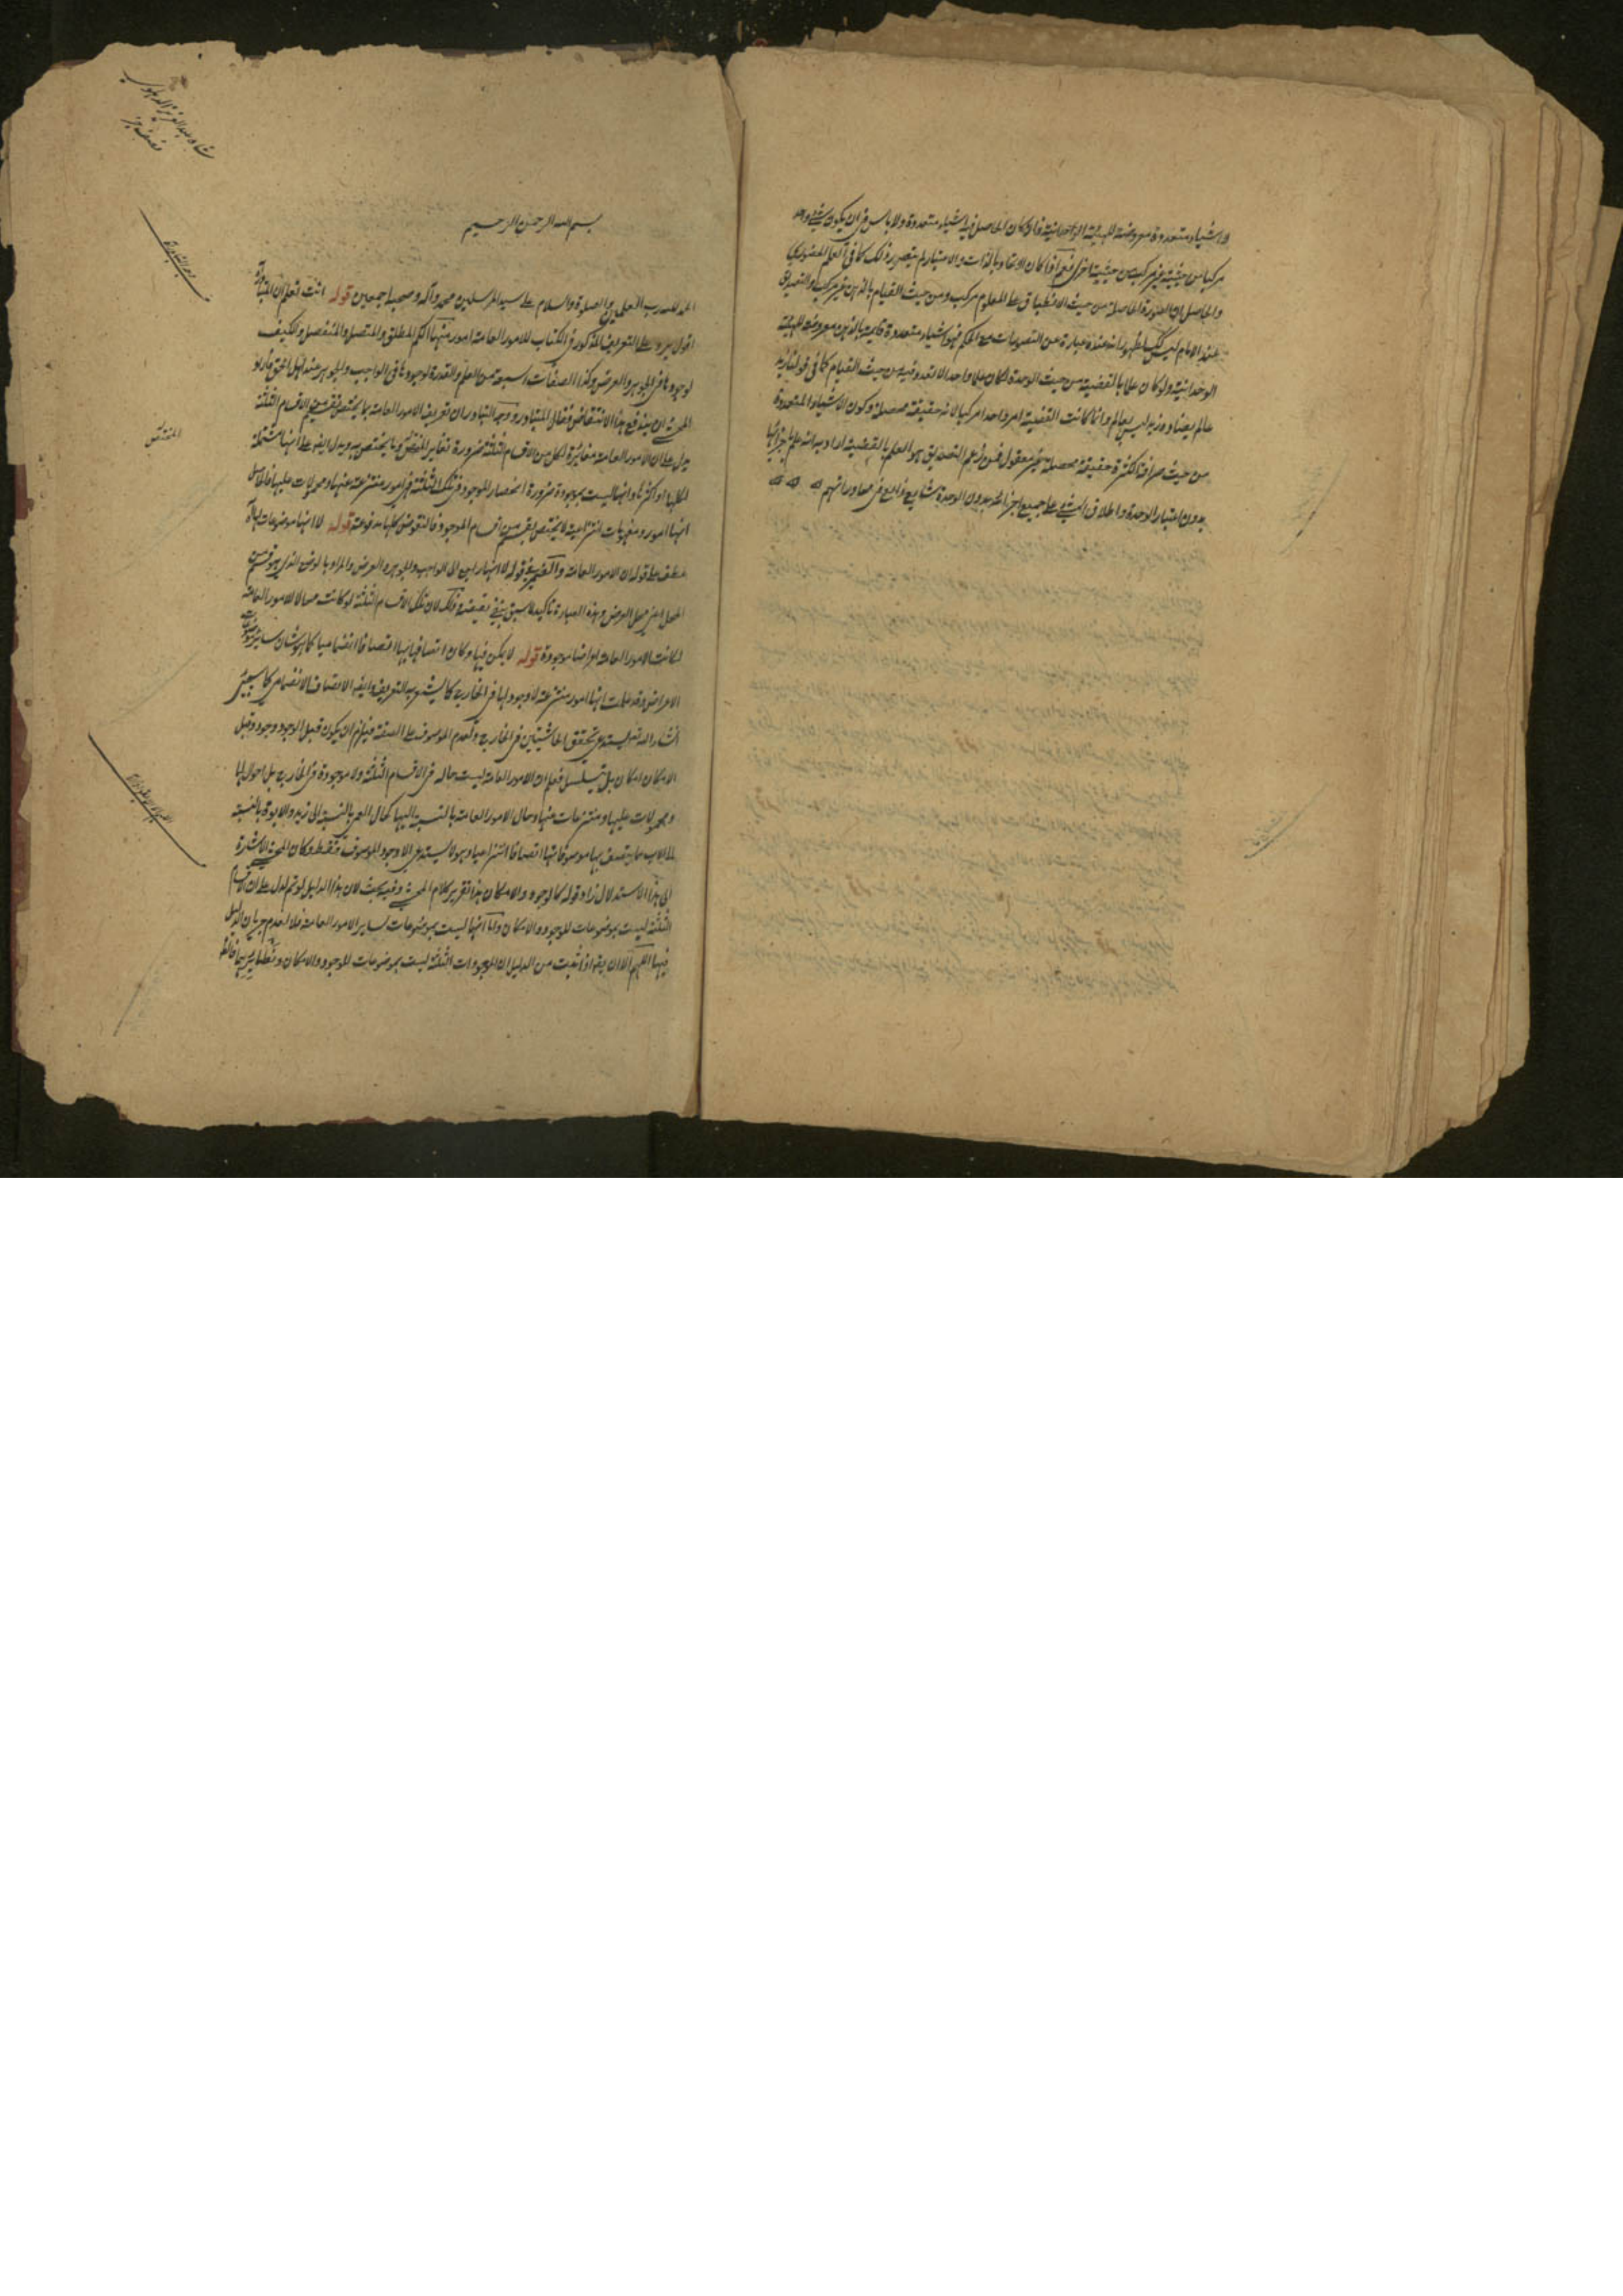 واشياء متعددة معروضة للهيئة الوحدانية وان كان الحاصل فيه اشياء متعددة ولا باس فى ان يكون شئ واحد
مركبا من حيثية غير مركب من حيثية اخرى نعم اذا كان الاتحاد بالذات والامتياز لم يتصور ذلك كما فى العلم الحضوري
والحاصل ان الصورة الحاصلة من حيث الانطباق على المعلوم مركب ومن حيث القيام بالذهن غير مركب والتصديق
عند الامام ليس كذلك لظهور انه عنده عبارة عن التصورات مع الحكم فهو اشياء متعددة قايمة بالذهن معروضة للهيئة
الوحدانية ولو كان علما بالقضية من حيث الوحدة لكان علما واحدا لا تعدد فيه من حيث القيام كما فى قولنا زيد
عالم وزيد ليس بعالم وانما كانت القضية امرا واحدا مركبا لانه حقيقة محصلة وكون الاشياء المتعددة
من حيث صرافة الكثرة حقيقة محصلة غير معقول فمن زعم التصديق هو العلم بالقضية اراد به انه علم باجزائها
بدون اعتبار الوحدة واطلاق الشئ على جميع اجزائه بدون الوحدة شايع ذايع فى محاوراتهم
شاه عبد العزيز الدهلوي
بسم الله الرحمن الرحيم
الحمد لله رب العلمين والصلوة والسلام على سيد المرسلين محمد وآله وصحبه اجمعين قوله انت تعلم ان المتبادر
اقول يرد على التعريف المذكور فى الكتاب للامور العامة امور منها الكم المطلق والمتصل والمنفصل والكيف
لوجودها فى الجوهر والعرض وكذا الصفات السبعة من العلم والقدرة لوجودها فى الواجب والجوهر عند اهل الحق فاراد
المحشى ان يدفع هذا الانتقاض فقال المتبادر ووجه التبادر ان تعريف الامور العامة بما لا يختص بقسم من الاقسام الثلثة
يدل على ان الامور العامة مغايرة لكل من الاقسام الثلثة ضرورة تغاير المختص وما يختص به ويدل ايضا على انها مشتملة
لكلها او اكثرها وانها ليست بموجودة ضرورة انحصار الموجود فى تلك الثلثة فهى امور منتزعة عنها ومحمولات عليها فالحاصل
انها امور ومفهومات انتزاعية لا يختص بقسم من اقسام الموجود فالنقوض كلها مدفوعة قوله لا انها موضوعات لها
عطف على قوله ان الامور العامة والضمير فى قوله لا انها راجع الى الواجب والجوهر والعرض والمراد بالعرض الذى هو قسم من
المحل اعنى محل العرض وهذه العبارة تاكيد لما سبق بنفى نقيضه وذلك لان تلك الاقسام الثلثة لو كانت محالا للامور العامة
لكانت الامور العامة اعراضا موجودة قوله لا يكن فيها وكان اتصافها بها اتصافا انضماميا كما هو شان ساير
الاعراض وقد علمت انها امور منتزعة لا وجود لها فى الخارج كما يشهد به التعريف وايضا الاتصاف الانضمامى كما سيجئ
انشاء الله تعالى يستدعى تحقق الحاشيتين فى الخارج وتقدم الموصوف على الصفة فيلزم ان يكون قبل الوجود وجود وقبل
الامكان امكان بل تسلسل فعلم ان الامور العامة ليست حالة فى الاقسام الثلثة ولا موجودة فى الخارج بل احوال لها
ومحمولات عليها ومنتزعات عنها وحال الامور العامة بالنسبة اليها كحال العمى بالنسبة الى زيد والابوة بالنسبة
للاب مما يتصف بها موصوفاتها اتصافا انتزاعيا وهو لا يستدعى الا وجود الموصوف فقط وكان المحشى للاشارة
الى هذا الاستدلال زاد قوله كالوجود والامكان هذا تقرير كلام المحشى وفيه بحث لان هذا الدليل لو تم لدل على ان الاقسام
الثلثة ليست بموضوعات للوجود والامكان واما انها ليست بموضوعات لساير الامور العامة فلا لعدم جريان الدليل
فيها اللهم الا ان يقال اذا ثبت من الدليل ان الموجودات الثلثة ليست بموضوعات للوجود والامكان ونظايرهما